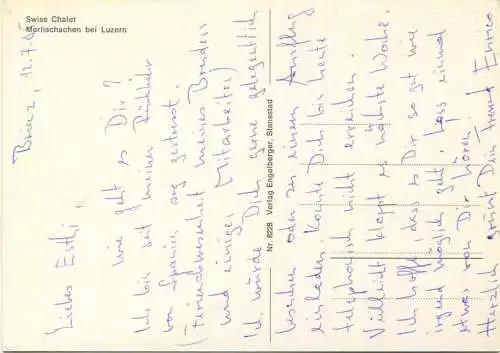 Swiss Chalet
Merlischachen bei Luzern
Nr. 8228 Verlag Engelberger, Stansstad
Brienz, 12.7.85
Liebes Esthi,
wie geht es Dir?
Ich bin seit meiner Rückkehr
von Spanien arg gestresst.
(Ferienabwesenheit meines Bruders
und einiger Mitarbeiter)
Ich würde Dich gerne gelegentlich
besuchen oder zu einem Ausflug
einladen. Konnte Dich bis heute
telephonisch nicht erreichen.
Vielleicht klappt es nächste Woche.
Ich hoffe, dass es Dir so gut wie
irgend möglich geht, lass einmal
etwas von Dir hören.
Herzlich grüsst Dein Freund Enrico